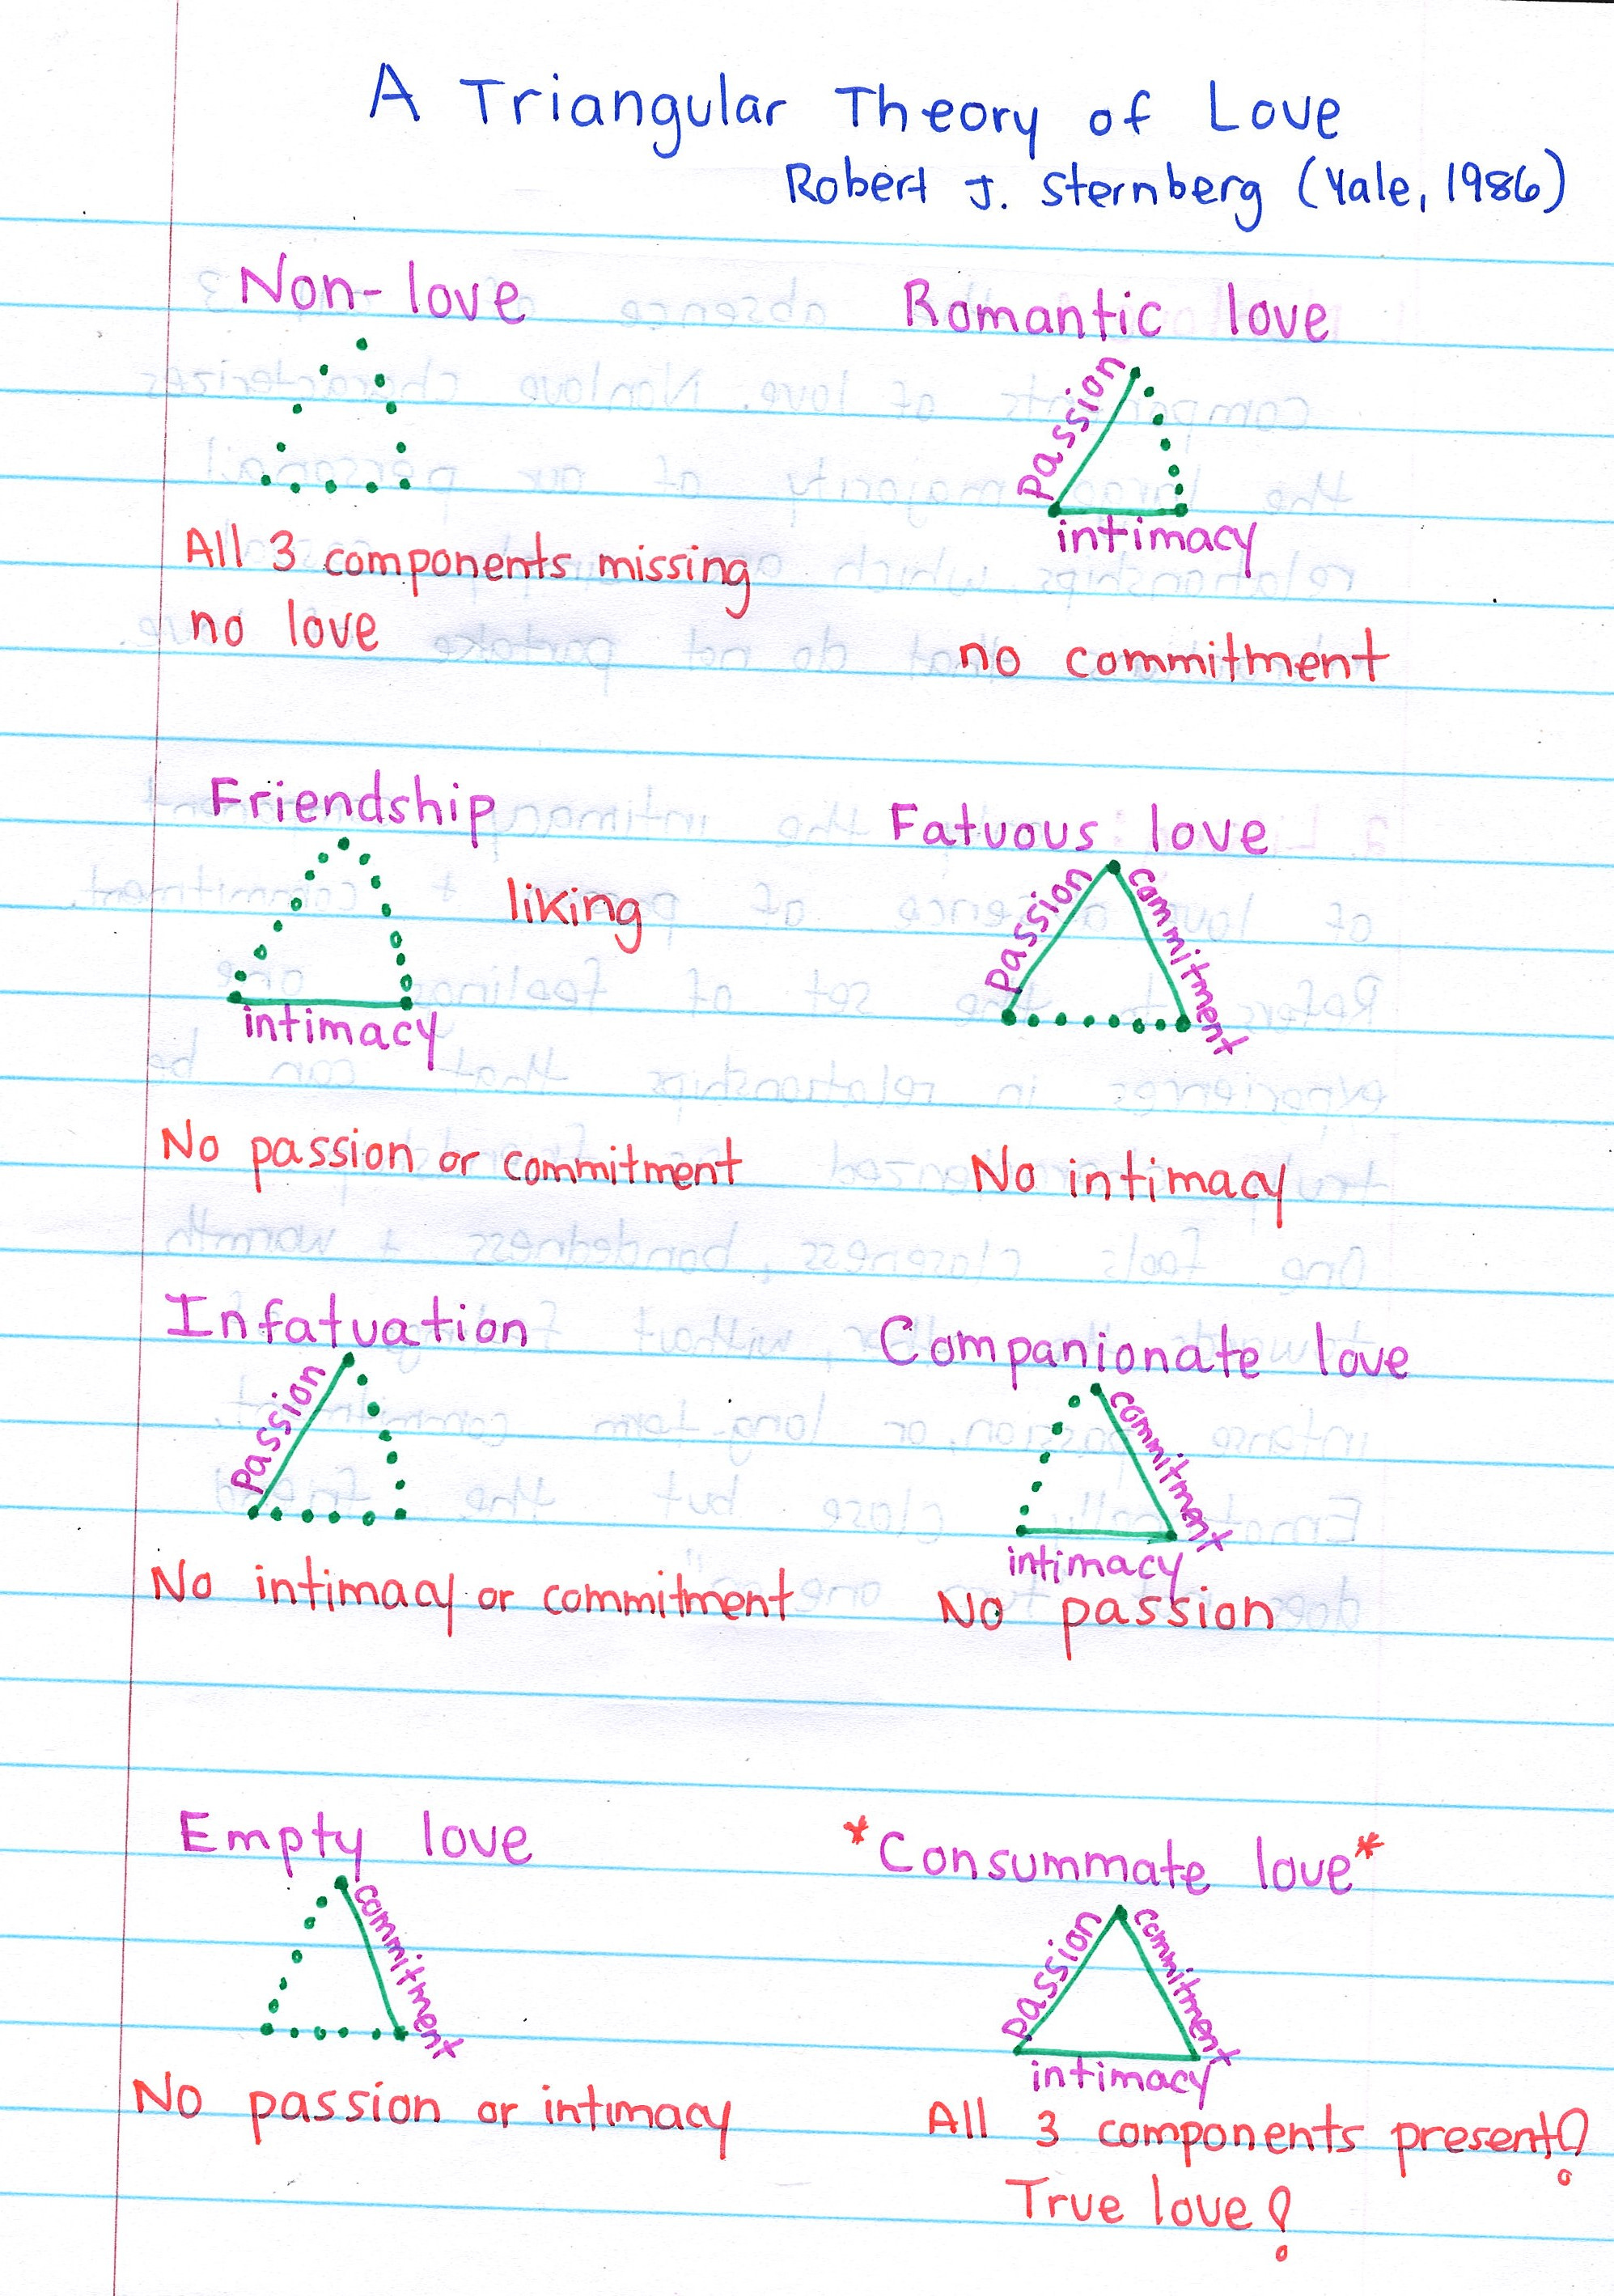 A Triangular Theory of Love
Robert J. Sternberg (Yale, 1986)
Non-love
All 3 components missing
no love
Romantic love
passion
intimacy
no commitment
Friendship
liking
intimacy
No passion or commitment
Fatuous love
passion
commitment
No intimacy
Infatuation
passion
No intimacy or commitment
Companionate love
commitment
intimacy
No passion
Empty love
commitment
No passion or intimacy
*Consummate love*
passion
commitment
intimacy
All 3 components present!
True love!